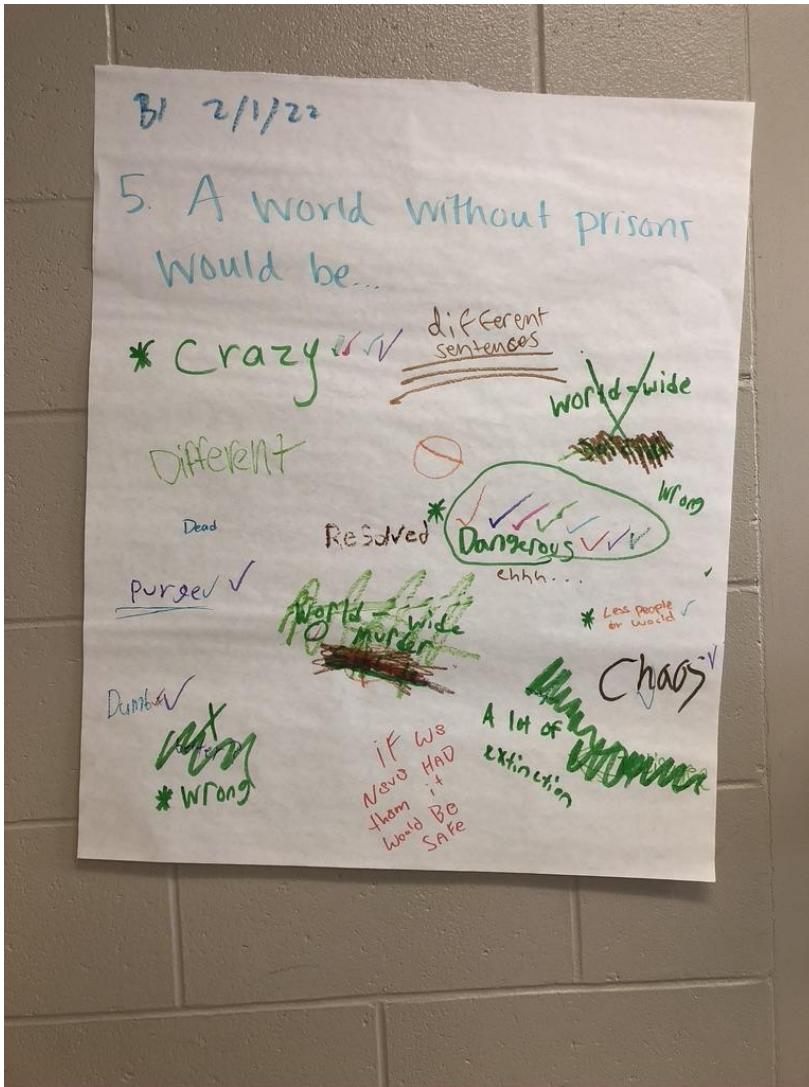 B1 2/1/22
5. A world without prisons
would be...
* Crazy
different
sentences
world-wide
Different
Wrong
Dead
Resolved
* Dangerous
ehhh...
Purge
World-wide
murder
* Less people
or world
Chaos
Dumb
* Wrong
iF we
Neve HAD
them it
would BE
SAFE
A lot of
extinction